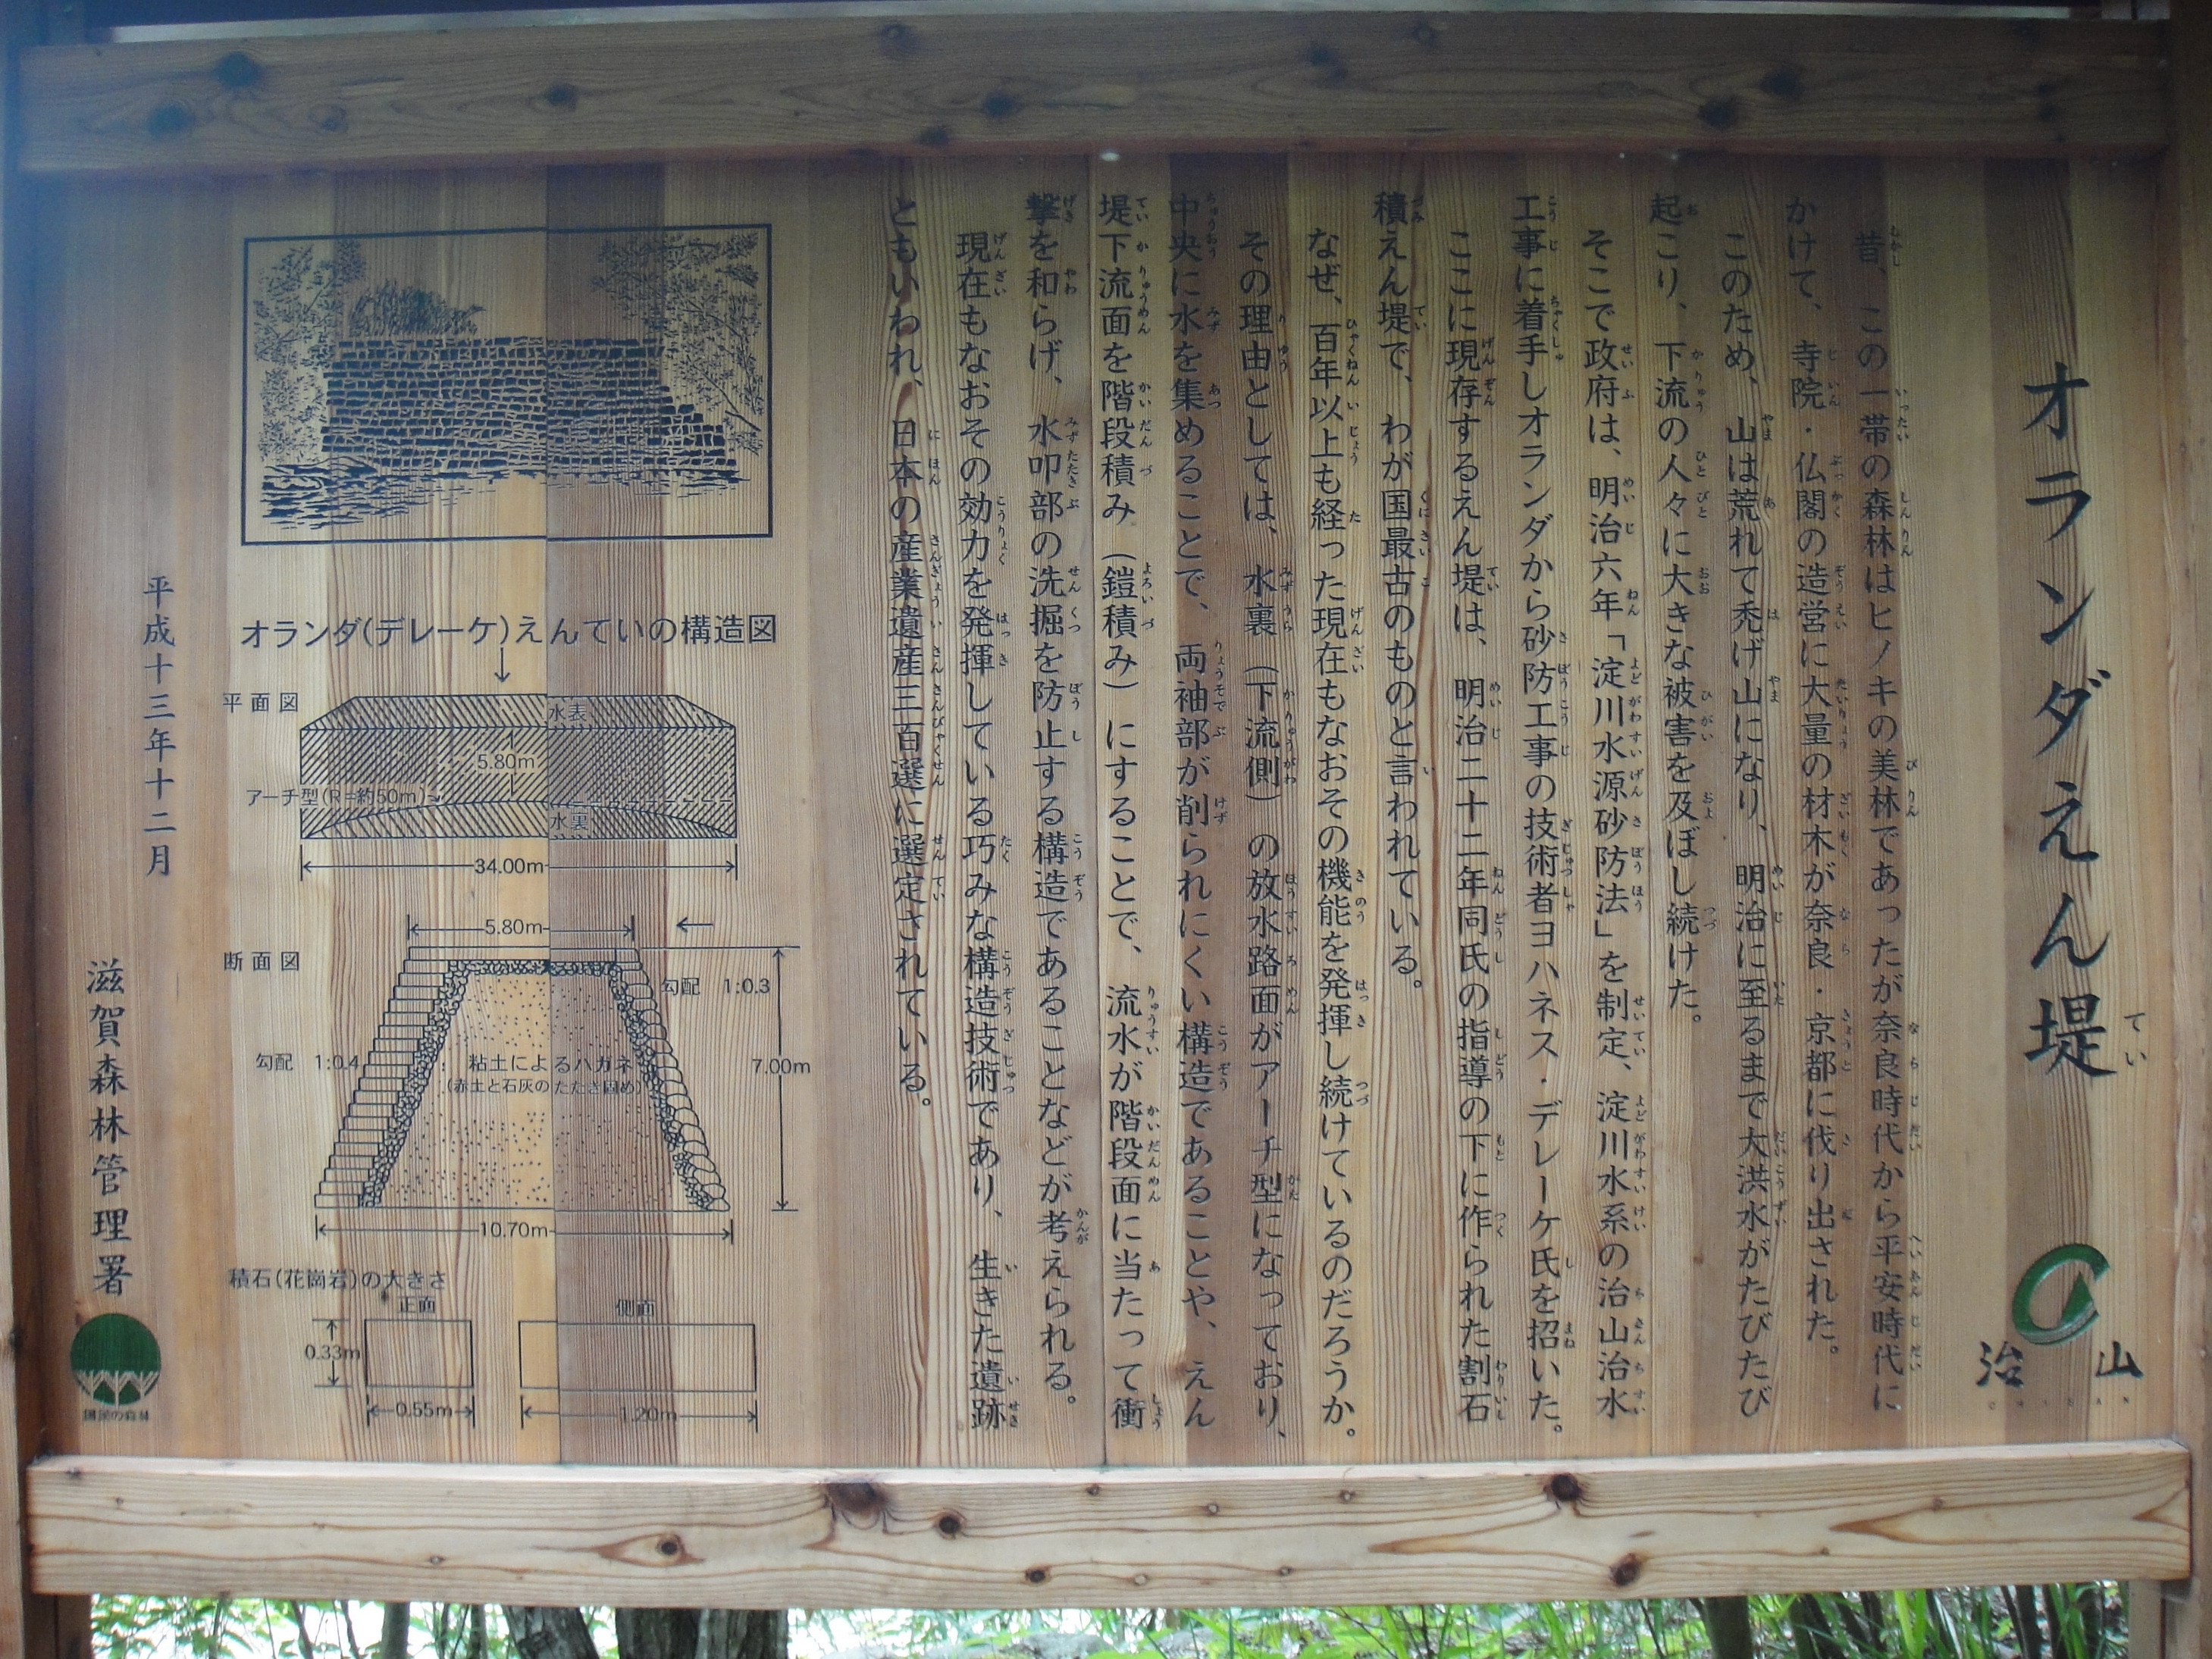 オランダえん堤
てい
治山
昔、この一帯の森林はヒノキの美林であったが奈良時代から平安時代に
かけて、寺院・仏閣の造営に大量の材木が奈良・京都に伐り出された。
このため、山は荒れて禿げ山になり、明治に至るまで大洪水がたびたび
起こり、下流の人々に大きな被害を及ぼし続けた。
そこで政府は、明治六年「淀川水源砂防法」を制定、淀川水系の治山治水
工事に着手しオランダから砂防工事の技術者ヨハネス・デレーケ氏を招いた。
ここに現存するえん堤は、明治二十二年同氏の指導の下に作られた割石
積えん堤で、わが国最古のものと言われている。
なぜ、百年以上も経った現在もなおその機能を発揮し続けているのだろうか。
その理由としては、水裏(下流側)の放水路面がアーチ型になっており、
中央に水を集めることで、両袖部が削られにくい構造であることや、えん
堤下流面を階段積み(鎧積み)にすることで、流水が階段面に当たって衝
撃を和らげ、水叩部の洗掘を防止する構造であることなどが考えられる。
現在もなおその効力を発揮している巧みな構造技術であり、生きた遺跡
ともいわれ、日本の産業遺産三百選に選定されている。
オランダ(デレーケ)えんていの構造図
平面図
水表
5.80m
アーチ型(R=約50m)
水裏
34.00m
5.80m
断面図
勾配 1:0.3
勾配 1:0.4
粘土によるハガネ
(赤土と石灰のたたき固め)
7.00m
10.70m
積石(花崗岩)の大きさ
正面
側面
0.33m
0.55m
1.20m
平成十三年十二月
滋賀森林管理署
国民の森林